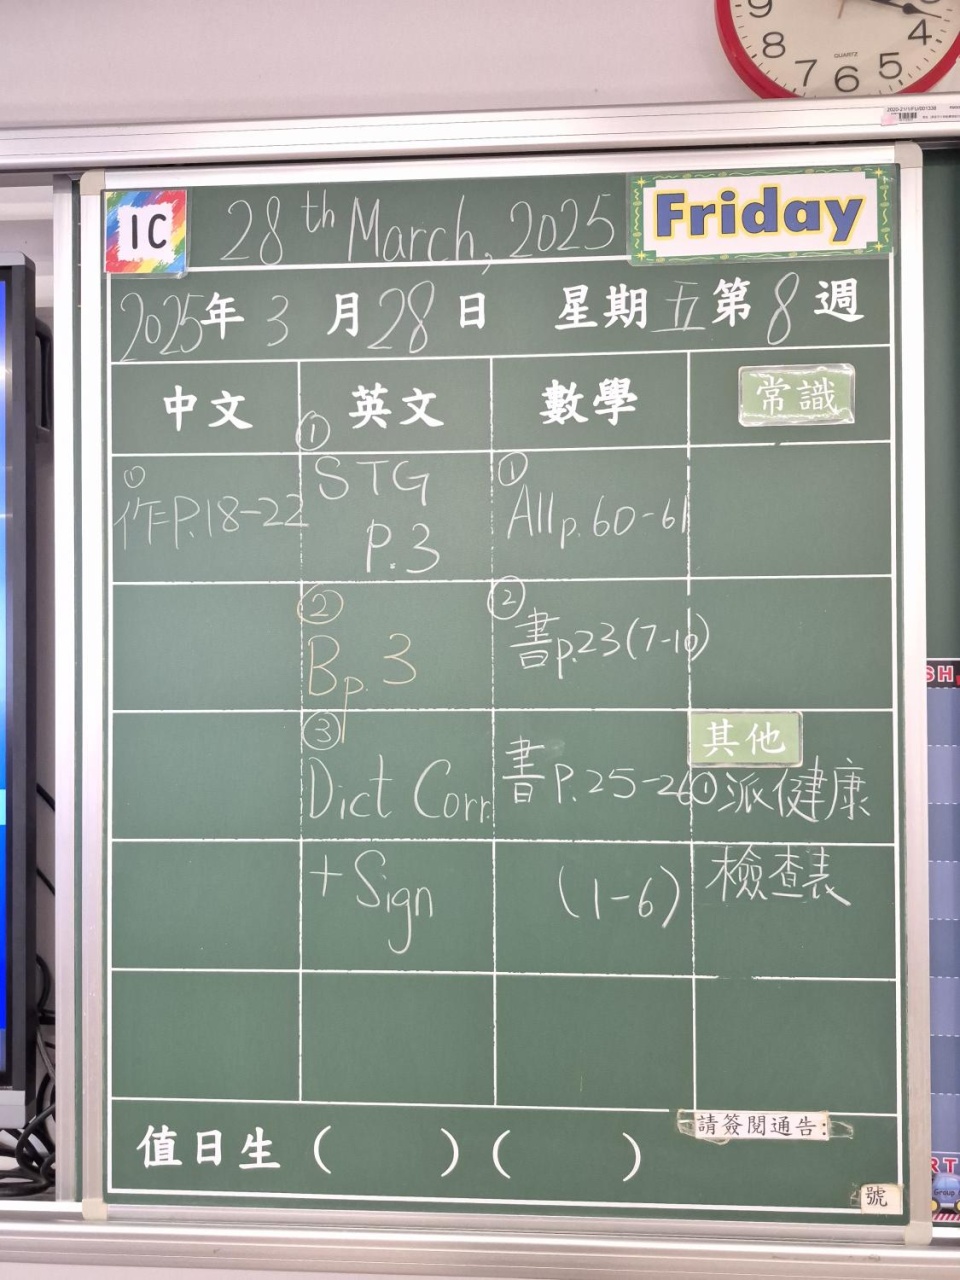 9
8
7
6
5
4
QUARTZ
1C
28th March, 2025
Friday
2025年3月28日 星期五第8週
中文 英文 數學 常識
① 作P.18-22
① STG
P.3
① All p.60-61
② Bp.3
② 書p.23(7-10)
③ Dict Corr.
+ Sign
書P.25-26
(1-6)
其他
① 派健康
檢查表
值日生 ( ) ( )
請簽閱通告:
號
SH,
RT
Group